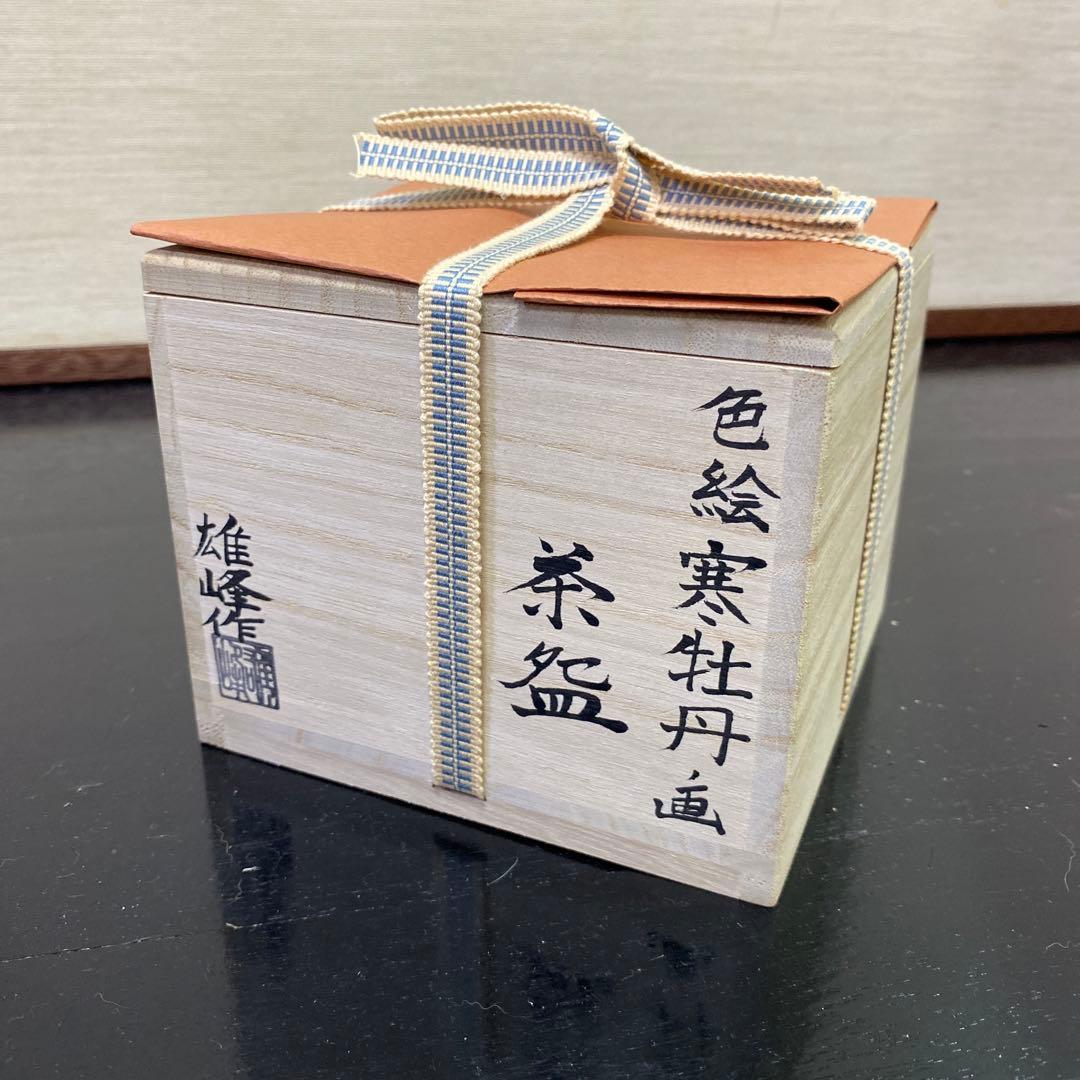 色絵寒牡丹画
茶盌
雄峰作